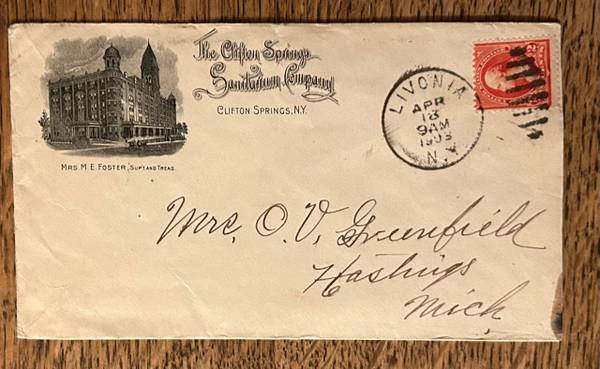 The Clifton Springs
Sanitarium Company
CLIFTON SPRINGS, N.Y.
MRS. M. E. FOSTER, SUP'T AND TREAS.
LIVONIA
APR
13
9AM
1903
N.Y.
Mrs. O. V. Greenfield
Hastings
Mich